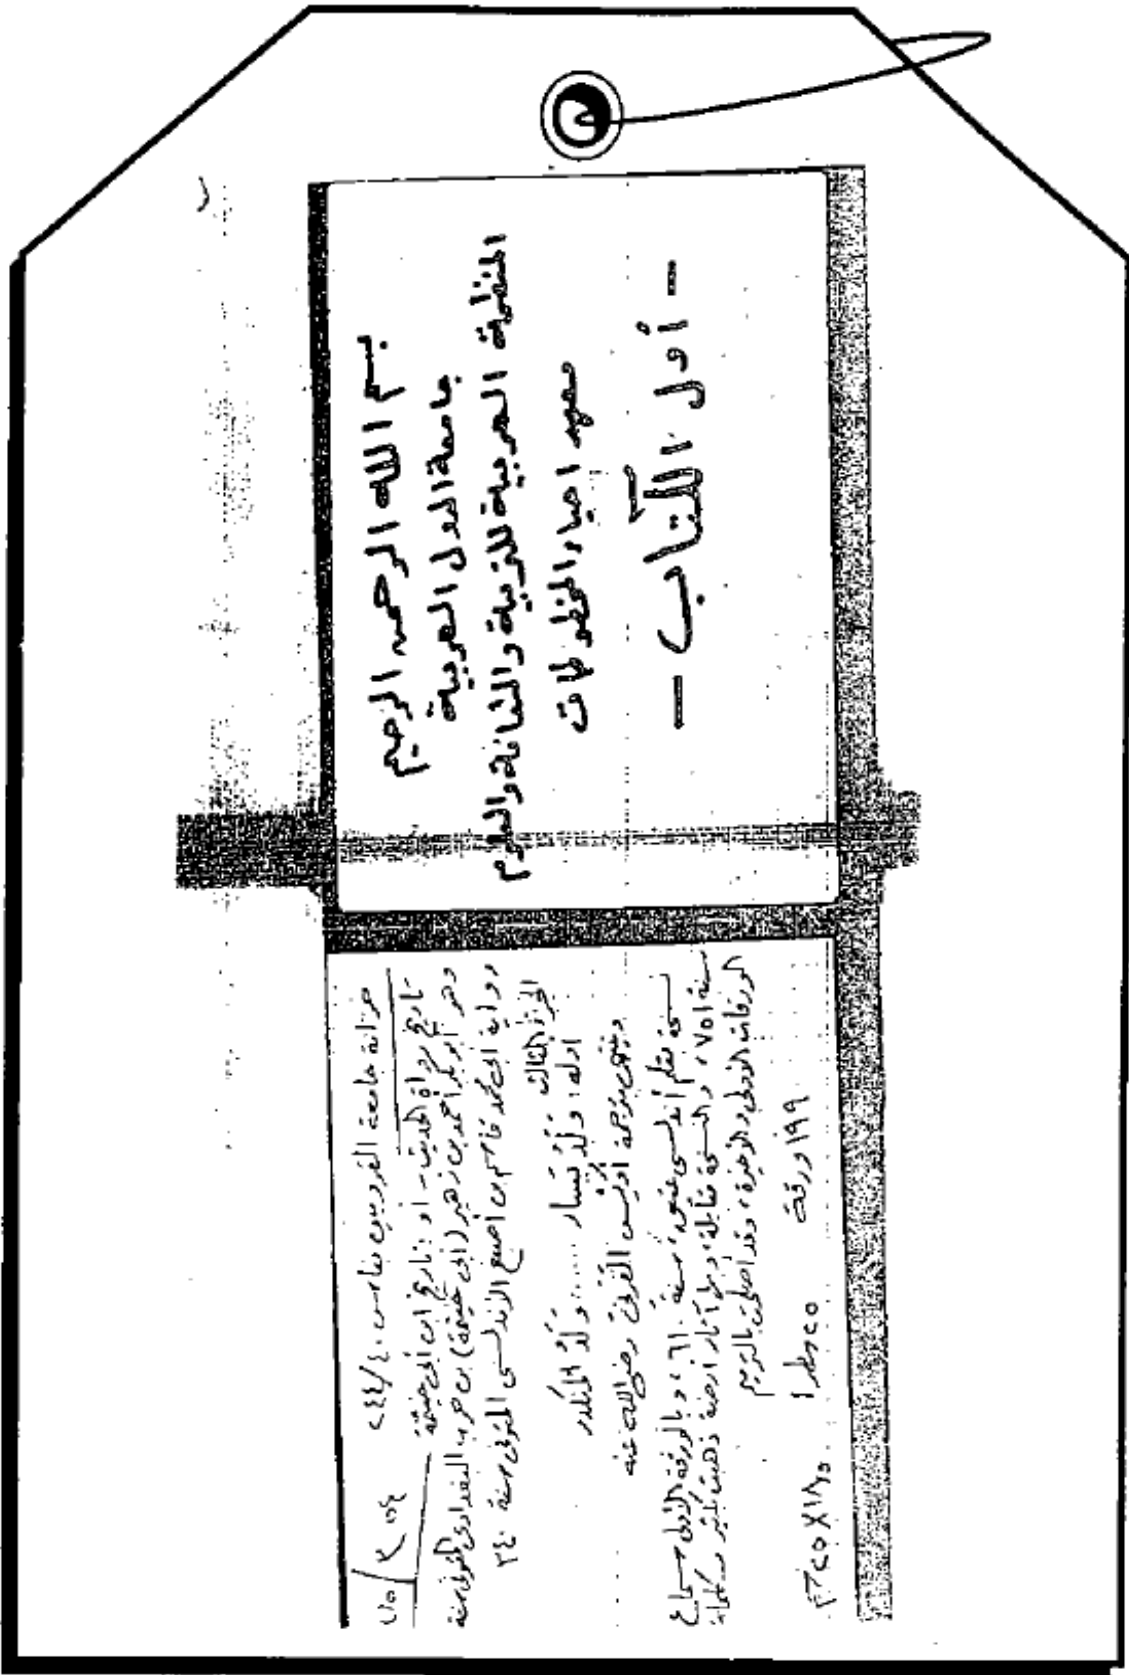 بسم الله الرحمن الرحيم
جامعة الدول العربية
المنظمة العربية للتربية والثقافة والعلوم
معهد احياء المخطوطات
- أول الكتاب -
خزانة جامعة القرويين بفاس ٢٤٤/٤٠
تاريخ رواة الحديث - أو : تاريخ ابن أبي خيثمة
وهو أبو بكر أحمد بن زهير (أبي خيثمة) بن حرب البغدادى المتوفى سنة
رواية ابى محمد قاسم بن أصبغ الأندلسى المتوفى سنة ٣٤٠
الجزء الثالث
اوله : ولد يسار ..... ولد المنكدر
وينتهى بترجمة أويس القرنى رضى الله عنه
نسخة بقلم أندلسى عتيق ، سنة ٦١٠ ، وبالورقة الأولى سماع
سنة ٧٥١ ، والنسخة مقابلة ، وبها آثار أرضة ذهبت بكثير من كلمات
الورقات الأولى والأخيرة ، وقد أصلحت بالترميم
١٩٩ ورقة ٢٥ سطرا ١٨٫٥ × ٢٥ سم